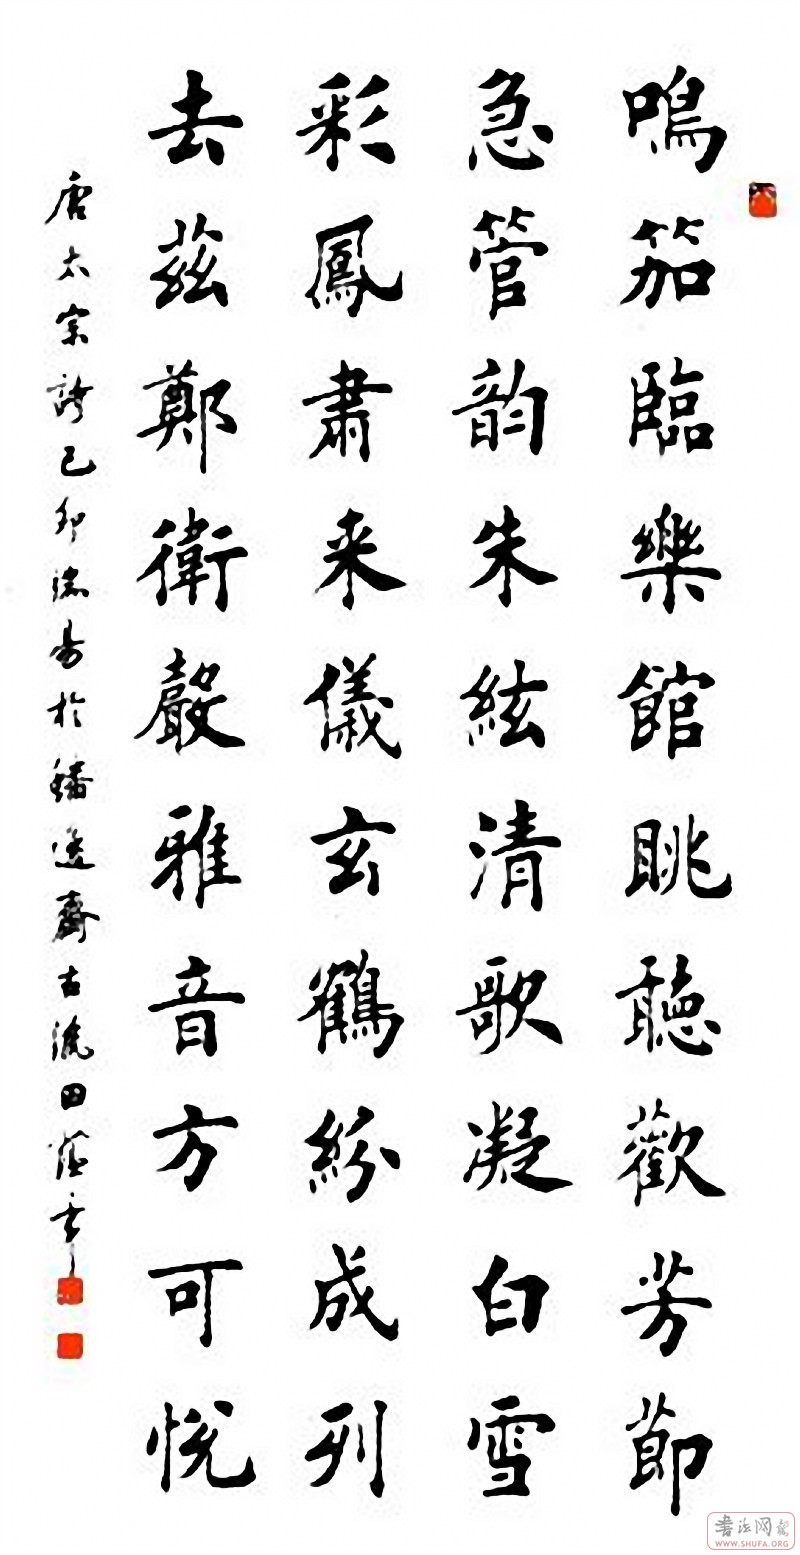 鳴笳臨樂館眺聽歡芳節
急管韵朱絃清歌凝白雪
彩鳳肅来儀玄鶴紛成列
去茲鄭衛聲雅音方可悅
唐太宗詩己卯端昜於齋古田蔭亭
書法网
WWW.SHUFA.ORG